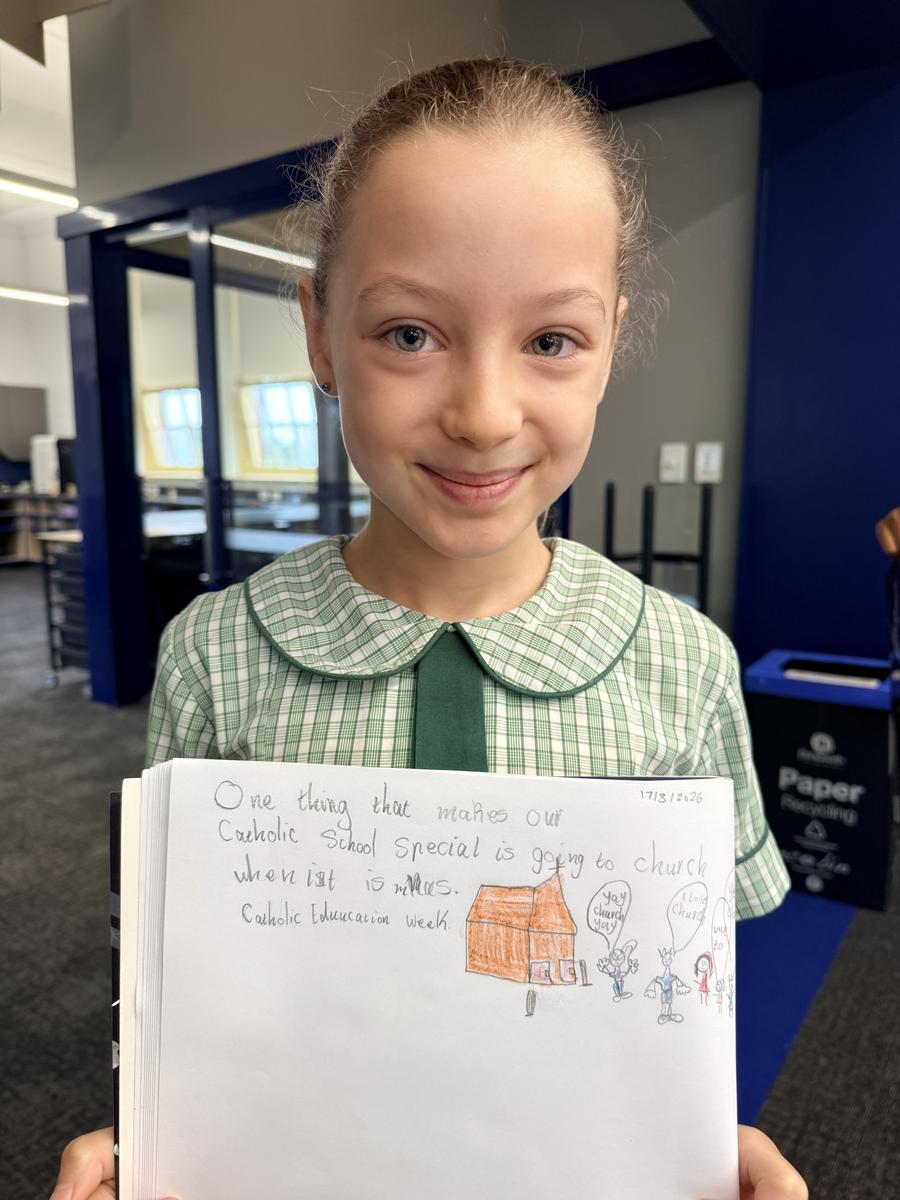 17/3/2026
One thing that makes our
Catholic School special is going to church
when ist is mass.
Catholic Eduucation week.
yay
church
yay
I Love
church
me
to
Paper
Recycling